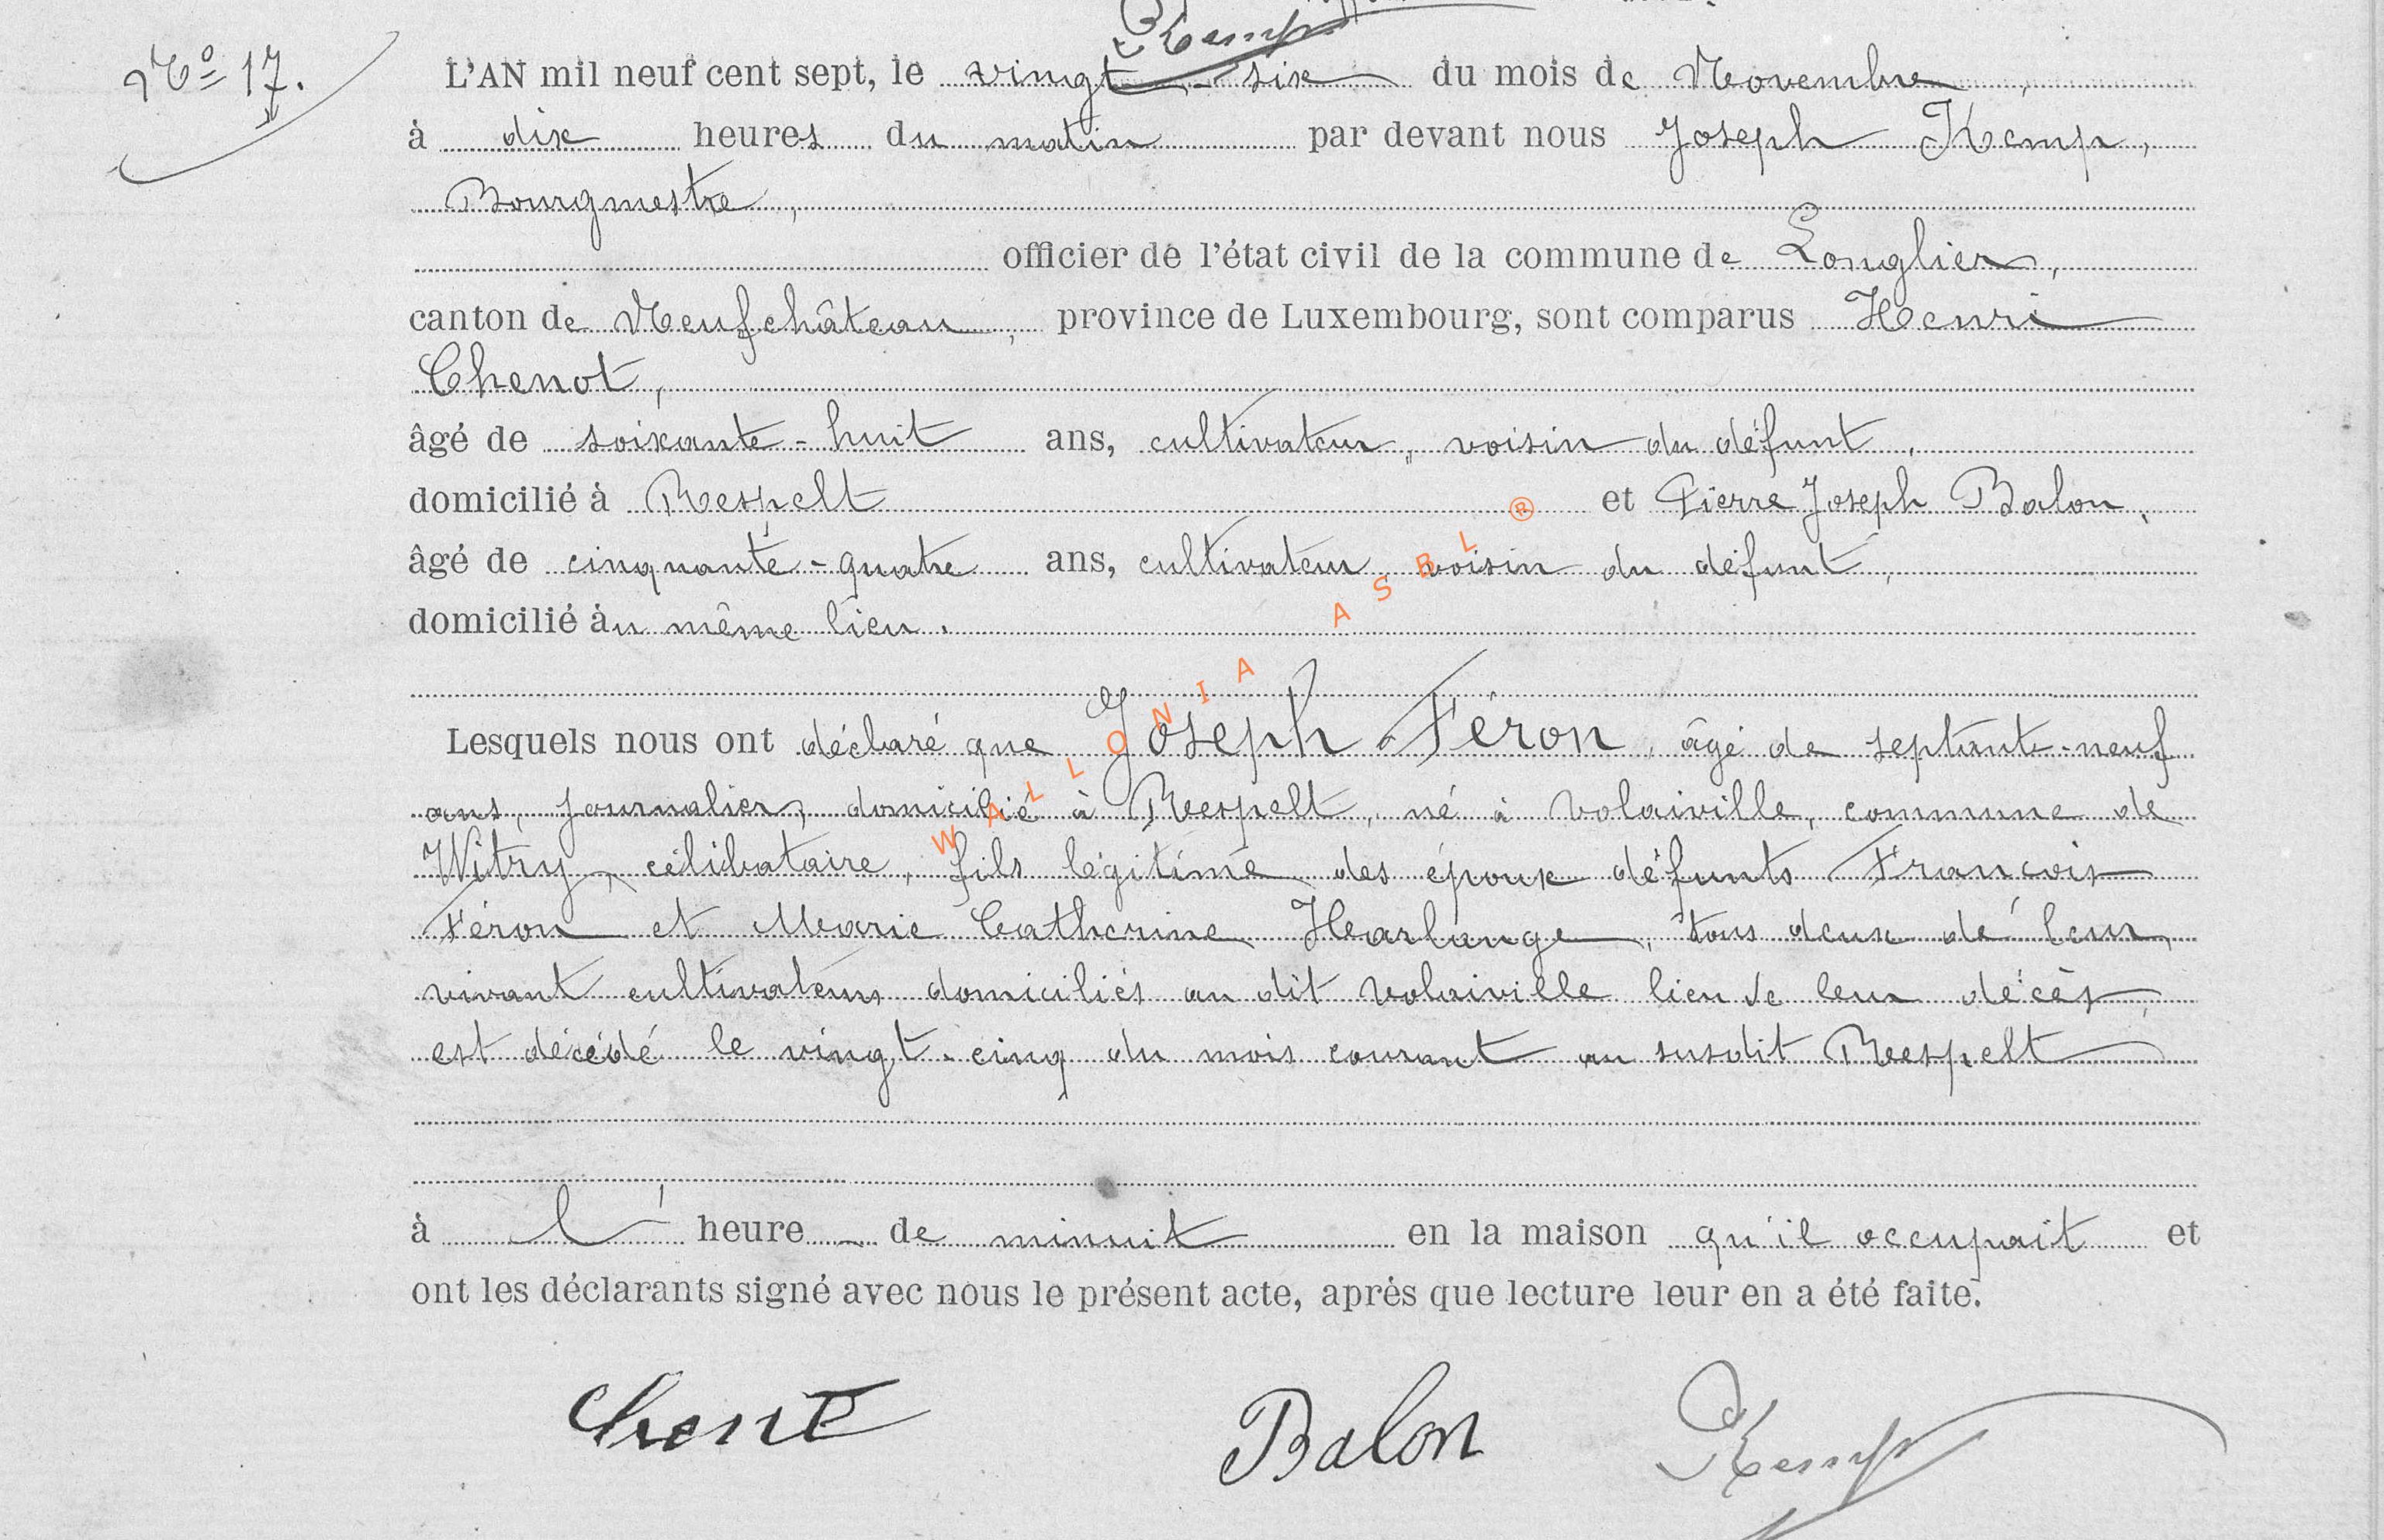 Kemp
N° 17.
L'AN mil neuf cent sept, le vingt-six du mois de Novembre,
à dix heures du matin par devant nous Joseph Kemp,
Bourgmestre,
officier de l'état civil de la commune de Longlier,
canton de Neufchâteau, province de Luxembourg, sont comparus Henri
Chenot,
âgé de soixante-huit ans, cultivateur, voisin du défunt,
domicilié à Respelt et Pierre Joseph Balon,
âgé de cinquante-quatre ans, cultivateur voisin du défunt,
domicilié àu même lieu.
Lesquels nous ont déclaré que Joseph Féron, âgé de septante-neuf
ans, journalier, domicilié à Respelt, né à Volaiville, commune de
Witry, célibataire, fils légitime des époux défunts François
Féron et Marie Catherine Harlange, tous deux de leur
vivant cultivateurs domiciliés au dit Volaiville lieu de leur décès,
est décédé le vingt-cinq du mois courant au susdit Respelt
à l' heure de minuit en la maison qu'il occupait et
ont les déclarants signé avec nous le présent acte, après que lecture leur en a été faite.
Chenot Balon Kemp
WALLONIA ASBL ®